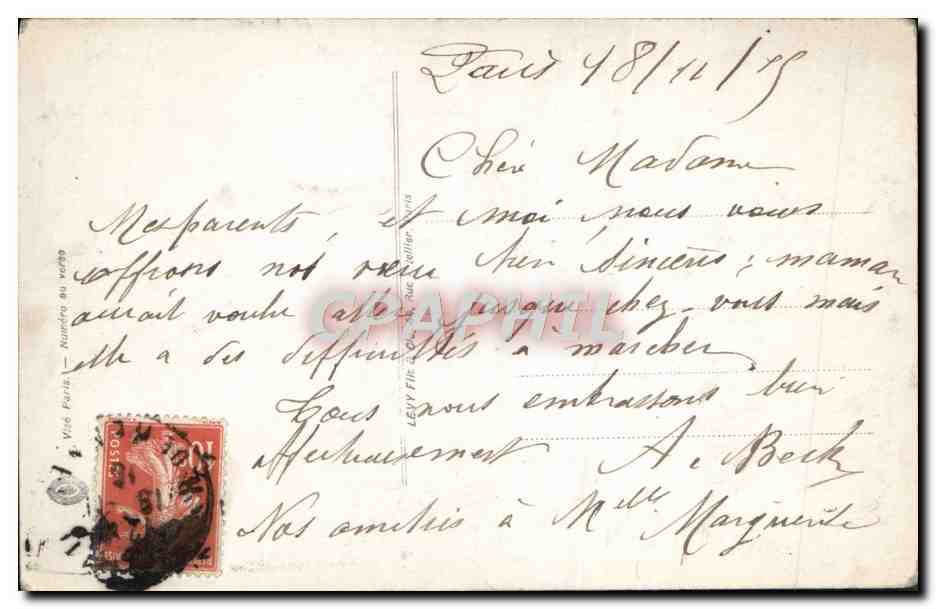 Paris 18/11/15
Chère Madame
Mes parents, et moi, nous vous
offrons nos vœux bien sincères ; maman
aurait voulu aller jusque chez-vous mais
elle a des difficultés à marcher
Tous nous embrassons bien
Affectueusement A. Beck
Nos amitiés à Melle Marguerite
Visé Paris. — Numéro au verso
LÉVY Fils & Cie, Rue Paris
CPAPHIL
10
POSTES